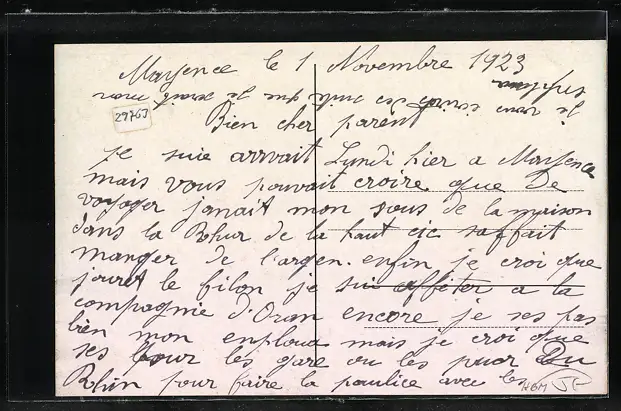 Mayence le 1 Novembre 1923
29763
Bien cher parent
je suie arrvait Lundi hier a Mayence
mais vous pouvait croire que de
voyager janait mon sous de la maison
dans la Rhur de la haut cic saffait
manger de l'argen. enfin je croi que
jouret le filon je sui affeter a la
compagnie d'Oran encore je ses pas
bien mon enploua mais je croi que
ses pour les gare ou les puor Du
Rhin pour faire la paulice avec les